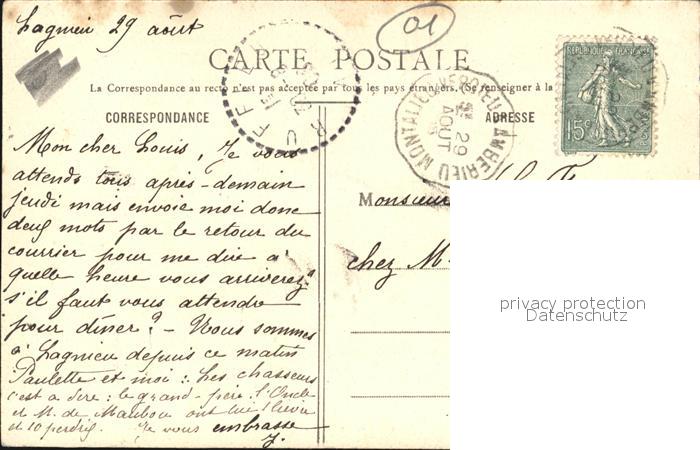 Lagnieu 29 août
01
CARTE POSTALE
La Correspondance au recto n'est pas acceptée par tous les pays étrangers. (Se renseigner à la
CORRESPONDANCE
ADRESSE
REPUBLIQUE FRANÇAISE
15c
RUFFIEU
MONTALIEU-VERCIEU AMBERIEU
29
AOUT
Mon cher Louis, Je vous
attends tous après-demain
jeudi mais envoie moi donc
deux mots par le retour du
courrier pour me dire à
quelle heure vous arriverez?
s'il faut vous attendre
pour dîner? - Nous sommes
à Lagnieu depuis ce matin
Paulette et moi : Les chasseurs
c'est à dire : le grand-père, l'Oncle
et M. de Maubou ont tué 1 lièvre
et 10 perdrix. Je vous embrasse
J.
Monsieur
chez M.
privacy protection
Datenschutz